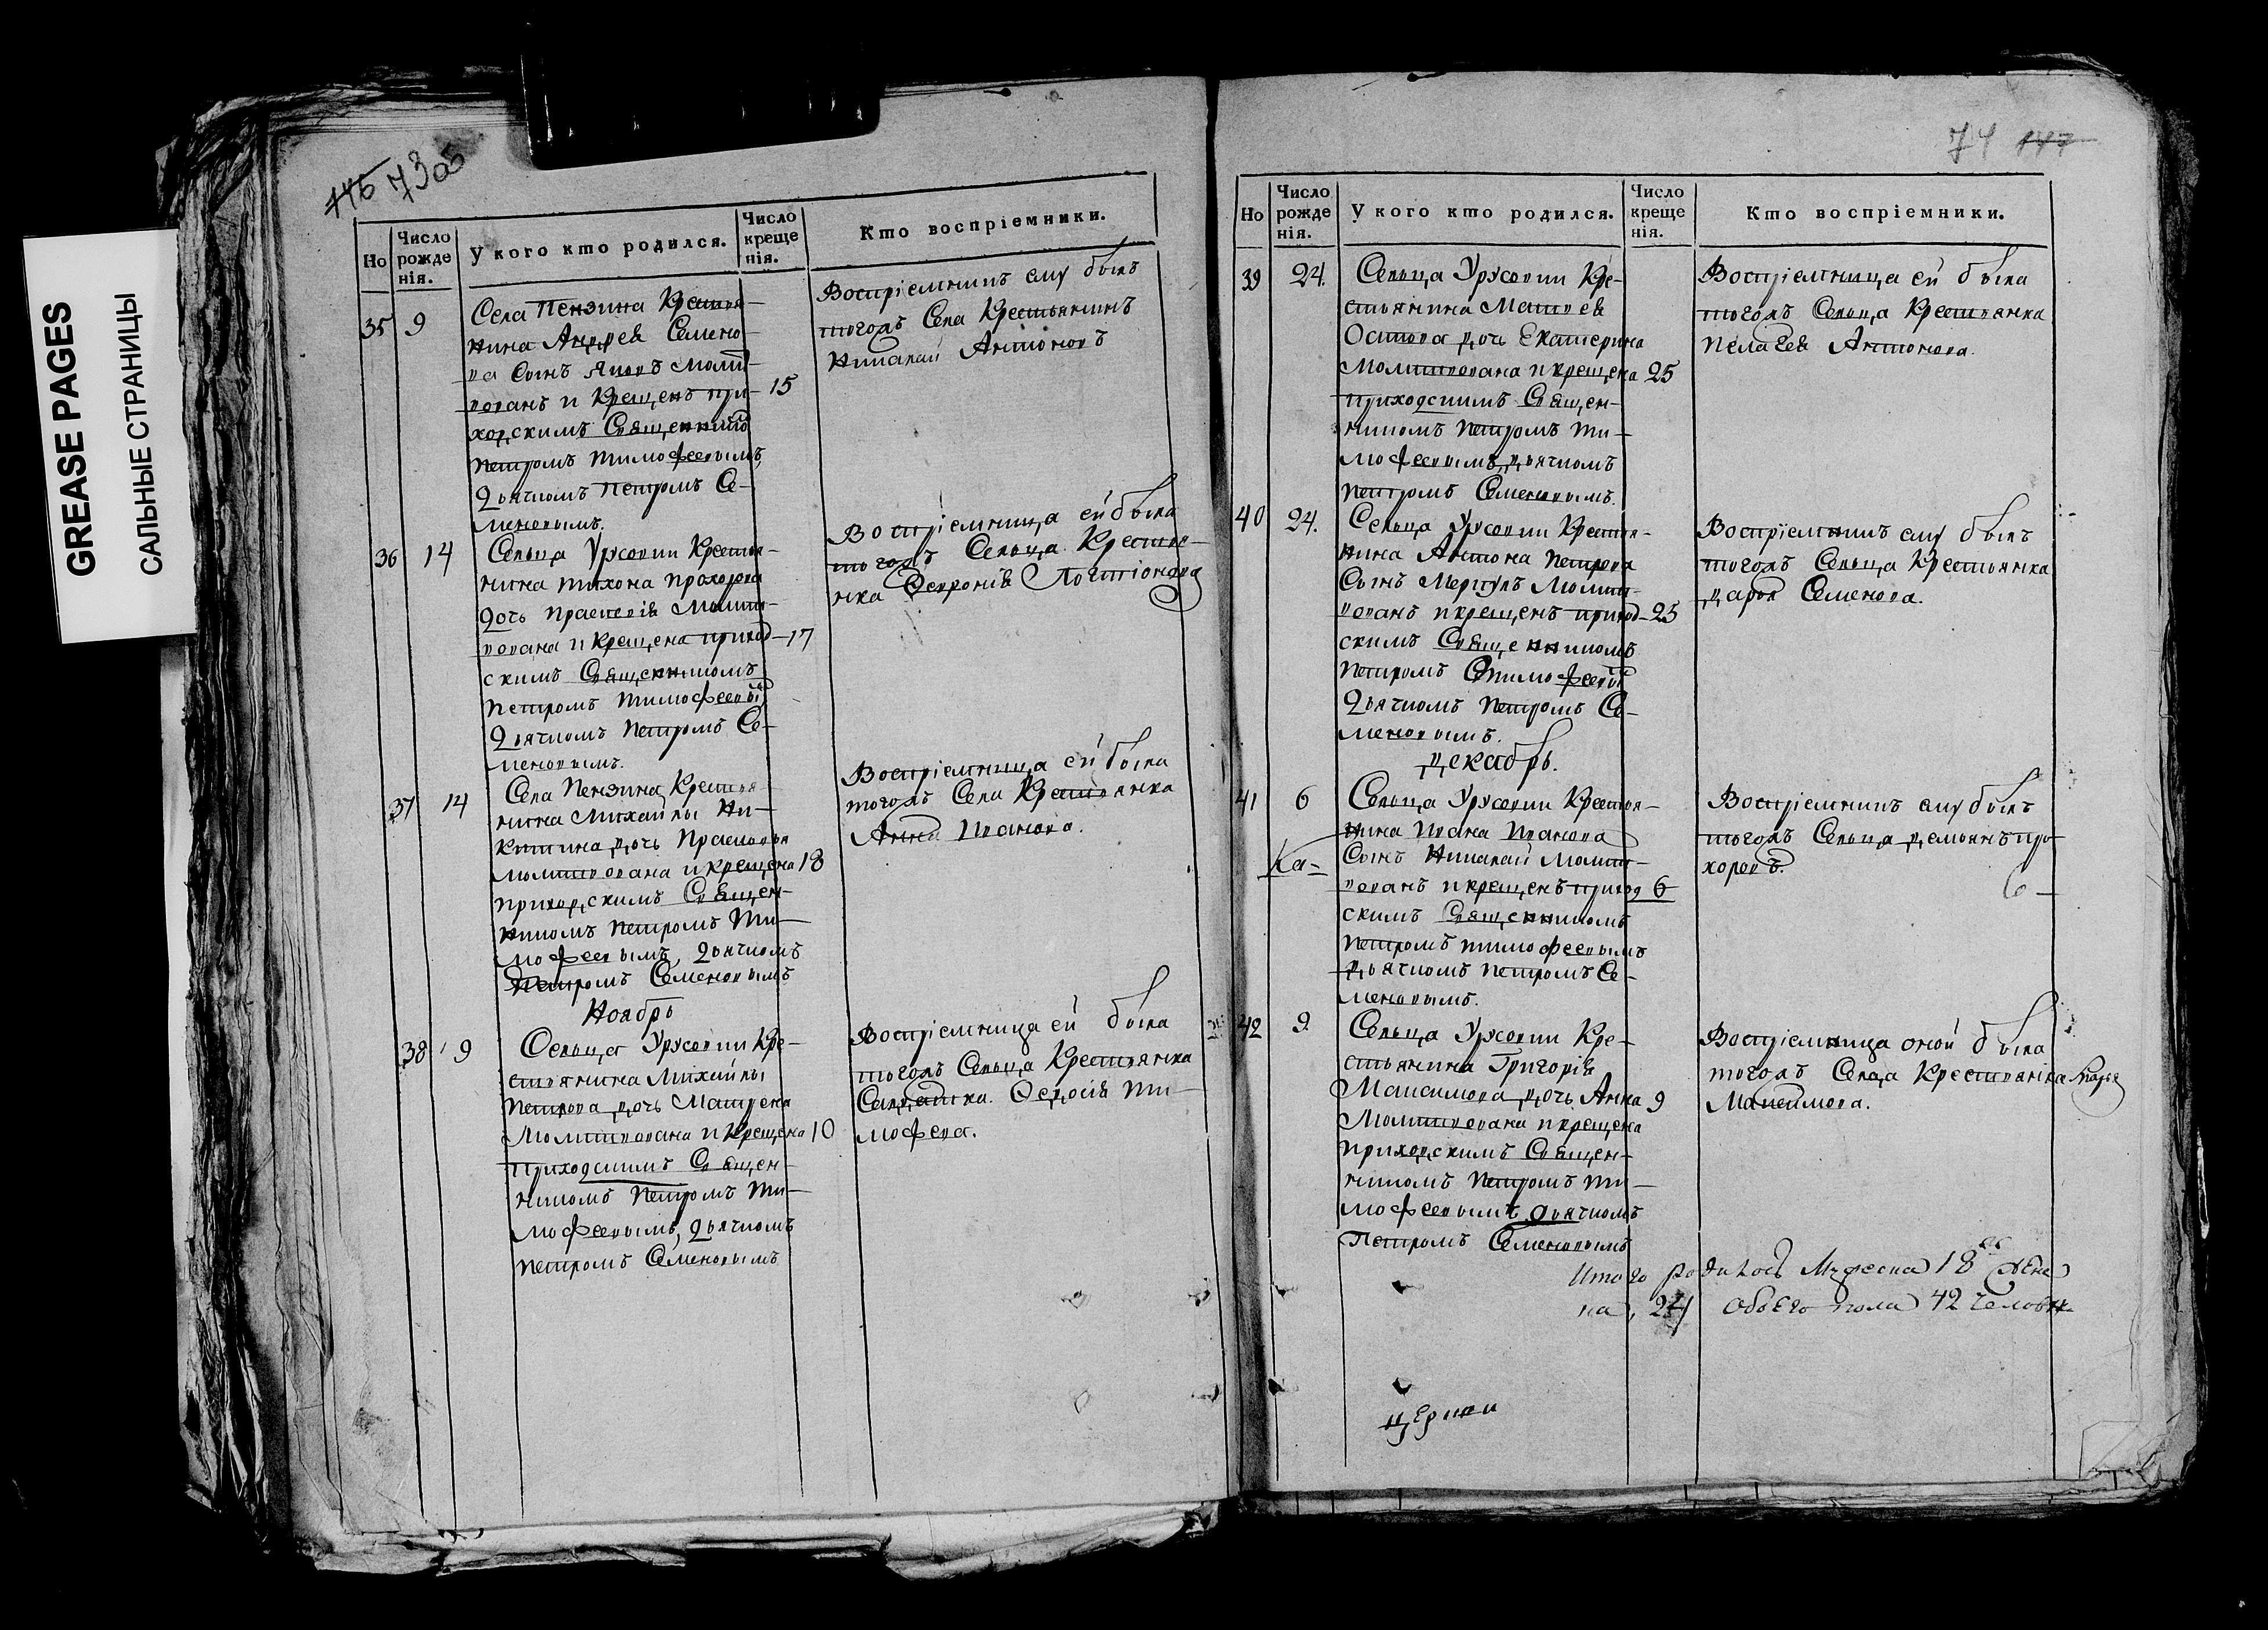 GREASE PAGES
САЛЬНЫЕ СТРАНИЦЫ
146 73об
Но
Число рожде нія.
У кого кто родился.
Число креще нія.
Кто воспріемники.
35 9
Села Пензина Крестья-
нина Андрея Семено-
ва Сынъ Яковъ Молит-
вованъ и Крещенъ при- 15
ходскимъ Священникомъ
Петромъ Тимофеевымъ,
Дьячкомъ Петромъ Се-
меновымъ.
Воспріемникъ ему былъ
тогожъ Села Крестьянинъ
Николай Антоновъ
36 14
Сельца Урусовки Крестья-
нина Тихона Прохорова
Дочь Праскевія Молит-
вована и Крещена приход- 17
скимъ Священникомъ
Петромъ Тимофеевы
Дьячкомъ Петромъ Се-
меновымъ.
Воспріемница ей была
тогожъ Сельца Крестья-
нка Февронія
37 14
Села Пензина Крестья
нина Михайлы Ни-
китина дочь Прасковья
Молитвована и крещена 18
приходскимъ Священ-
никомъ Петромъ Ти-
мофеевымъ, Дьячкомъ
Петромъ Семеновымъ
Воспріемница ей была
тогожъ Села Крестьянка
Анна Иванова.
Ноябрь
38 9
Сельца Урусовки Кре-
стьянина Михайлы
Петрова дочь Матрена
Молитвована и Крещена 10
приходскимъ Священ-
никомъ Петромъ Ти-
мофеевымъ, Дьячкомъ
Петромъ Семеновымъ
Воспріемница ей была
тогожъ Сельца Крестьянка
Солдатка. Федосія Ти-
мофева.
74 147
Но
Число рожде нія.
У кого кто родился.
Число креще нія.
Кто воспріемники.
39 24.
Сельца Урусовки Кре-
стьянина Матвея
Остова дочь Екатерина
Молитвована и крещена 25
приходскимъ Священ-
никомъ Петромъ Ти-
мофеевымъ, дьячкомъ
Петромъ Семеновымъ.
Воспріемница ей была
тогожъ Сельца Крестьянка
Пелагея Антонова.
40 24.
Сельца Урусовки Крестья-
нина Антона Петрова
Сынъ Меркулъ Молит-
вованъ и крещенъ приход- 25
скимъ Священникомъ
Петромъ Тимофеевы
Дьячкомъ Петромъ Се-
меновымъ.
Воспріемникъ ему былъ
тогожъ Сельца Крестьянка
Дарья Семенова.
Декабрь.
41 6
Сельца Урусовки Крестья-
нина Ивана Иванова
Сынъ Николай Молит-
вованъ и крещенъ приход 6
скимъ Священникомъ
Петромъ Тимофеевымъ
Дьячкомъ Петромъ Се-
меновымъ.
Ка-
Воспріемникъ ему былъ
тогожъ Сельца Демьянъ Про-
хоровъ.
6 -
42 9.
Сельца Урусовки Кре-
стьянина Григорія
Максимова дочь Анна 9
Молитвована и крещена
приходскимъ Священ-
никомъ Петромъ Ти-
мофеевымъ дьячкомъ
Петромъ Семеновымъ
Воспріемница оной была
тогожъ Сельца Крестьянка Марья
Максимова.
Итого родилось Мужеска 18 Жене
ка, 24 обоего пола 42 человѣка
церкви